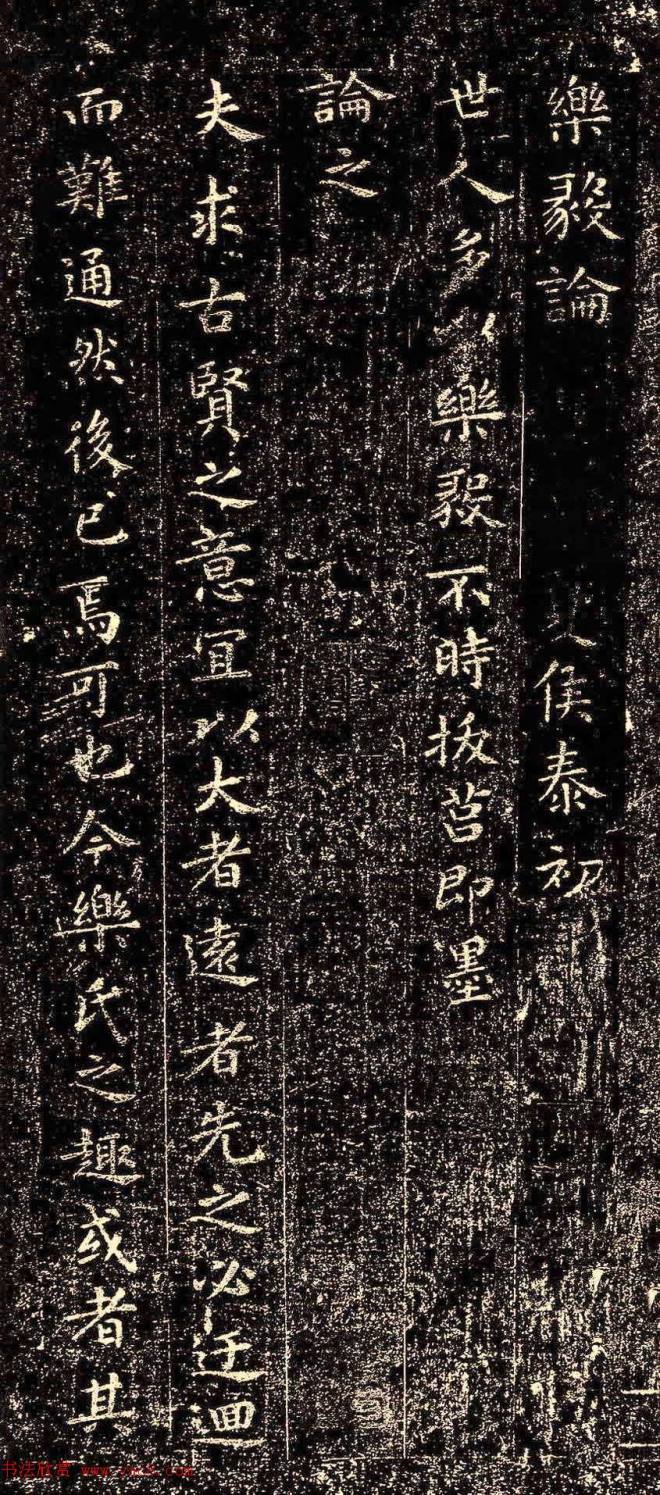 樂毅論 夏侯泰初
世人多以樂毅不時拔莒即墨
論之
夫求古賢之意宜以大者遠者先之必迂迴
而難通然後已焉可也今樂氏之趣或者其
书法欣赏